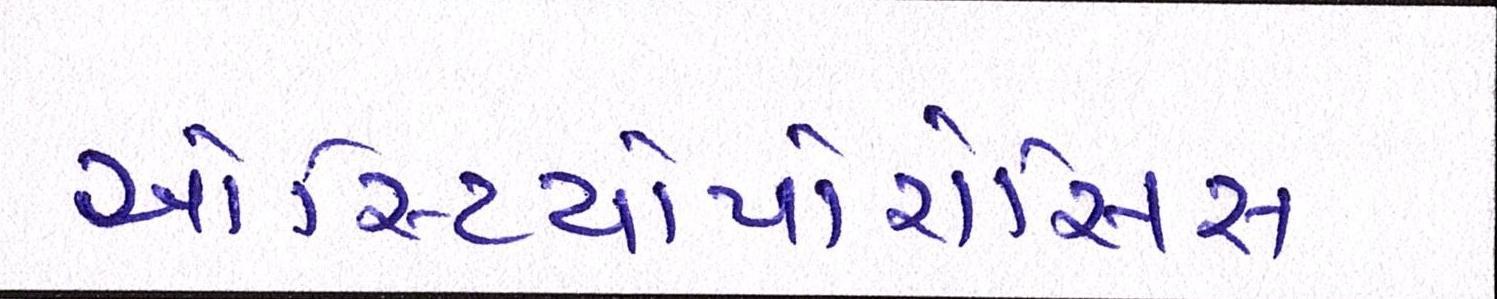 ઓસ્ટિયોપોરોસિસ